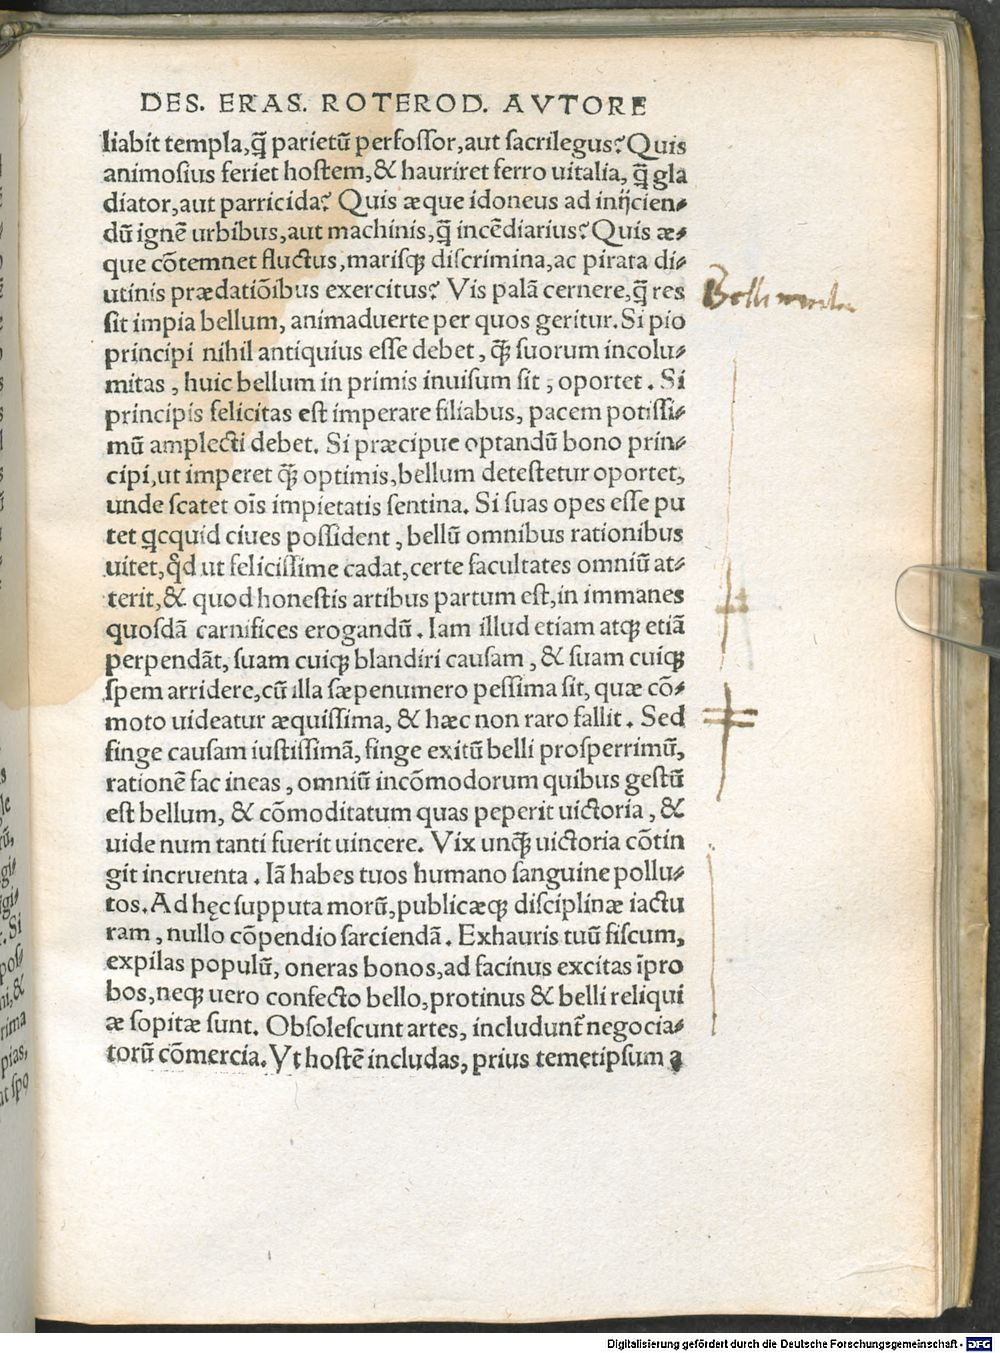 DES. ERAS. ROTEROD. AVTORE
liabit templa,q̃ parietũ perfoſſor,aut ſacrilegus? Quis
animoſius feriet hoſtem,& hauriret ferro uitalia, q̃ gla
diator,aut parricida? Quis æque idoneus ad inijcien-
dũ ignẽ urbibus,aut machinis,q̃ incẽdiarius? Quis æ-
que cõtemnet fluctus,mariſq; diſcrimina,ac pirata di-
utinis prædatiõibus exercitus? Vis palã cernere,q̃ res
ſit impia bellum, animaduerte per quos geritur. Si pio
principi nihil antiquius eſſe debet , q̃ ſuorum incolu-
mitas , huic bellum in primis inuiſum ſit , oportet . Si
principis felicitas eſt imperare filiabus, pacem potiſſi-
mũ amplecti debet. Si præcipue optandũ bono prin-
cipi,ut imperet q̃ optimis,bellum deteſtetur oportet,
unde ſcatet oĩs impietatis ſentina. Si ſuas opes eſſe pu
tet qcquid ciues poſſident , bellũ omnibus rationibus
uitet,qd ut feliciſſime cadat,certe facultates omniũ at-
terit,& quod honeſtis artibus partum eſt,in immanes
quoſdã carnifices erogandũ . Iam illud etiam atq; etiã
perpendãt, ſuam cuiq; blandiri cauſam , & ſuam cuiq;
ſpem arridere,cũ illa ſæpenumero peſſima ſit, quæ cõ-
moto uideatur æquiſſima, & hæc non raro fallit . Sed
finge cauſam iuſtiſſimã, finge exitũ belli proſperrimũ,
rationẽ fac ineas , omniũ incõmodorum quibus geſtũ
eſt bellum, & cõmoditatum quas peperit uictoria , &
uide num tanti fuerit uincere. Vix unq̃ uictoria cõtin
git incruenta . Iã habes tuos humano ſanguine pollu-
tos. Ad hęc ſupputa morũ,publicæq; diſciplinæ iactu
ram , nullo cõpendio ſarciendã . Exhauris tuũ fiſcum,
expilas populũ, oneras bonos,ad facinus excitas ĩpro
bos,neq; uero confecto bello,protinus & belli reliqui
æ ſopitæ ſunt. Obſoleſcunt artes, includunt̃ negocia-
torũ cõmercia. Vt hoſtẽ includas, prius temetipſum a
Digitalisierung gefördert durch die Deutsche Forschungsgemeinschaft - DFG